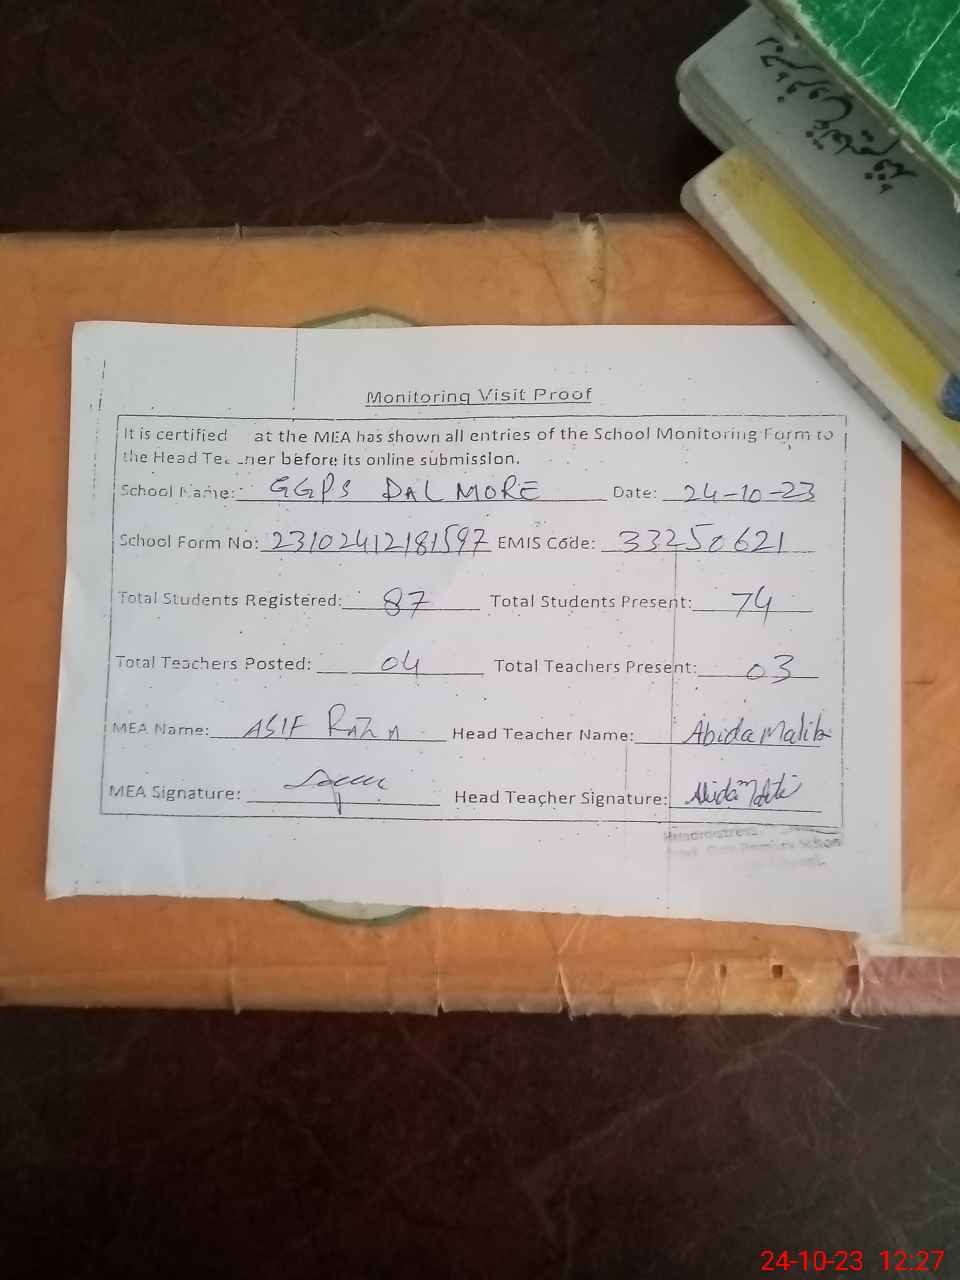 Monitoring Visit Proof
It is certified at the MEA has shown all entries of the School Monitoring Form to
the Head Te ner before its online submission.
School Name: GGPS DALMORE Date: 24-10-23
School Form No: 23102412181597 EMIS Code: 33250621
Total Students Registered: 87 Total Students Present: 74
Total Teachers Posted: 04 Total Teachers Present: 03
MEA Name: ASIF RAZA Head Teacher Name: Abida Malik
MEA Signature: Head Teacher Signature: Abida Malik
Headmistress
School
24-10-23 12:27